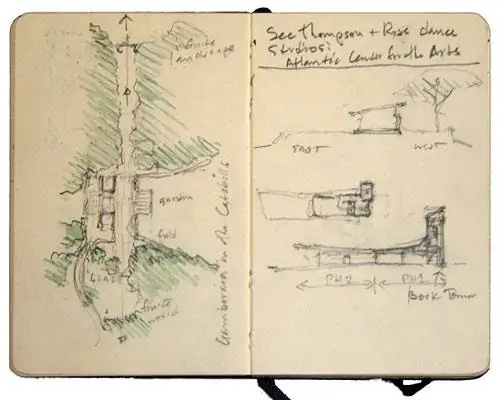 infinite
landscape
garden
field
GLADE
finite
world
in the Catskills
See Thompson + Rose dance
Studios:
Atlantic Center for the Arts
EAST
WEST
PH2
PH1
Book Tower